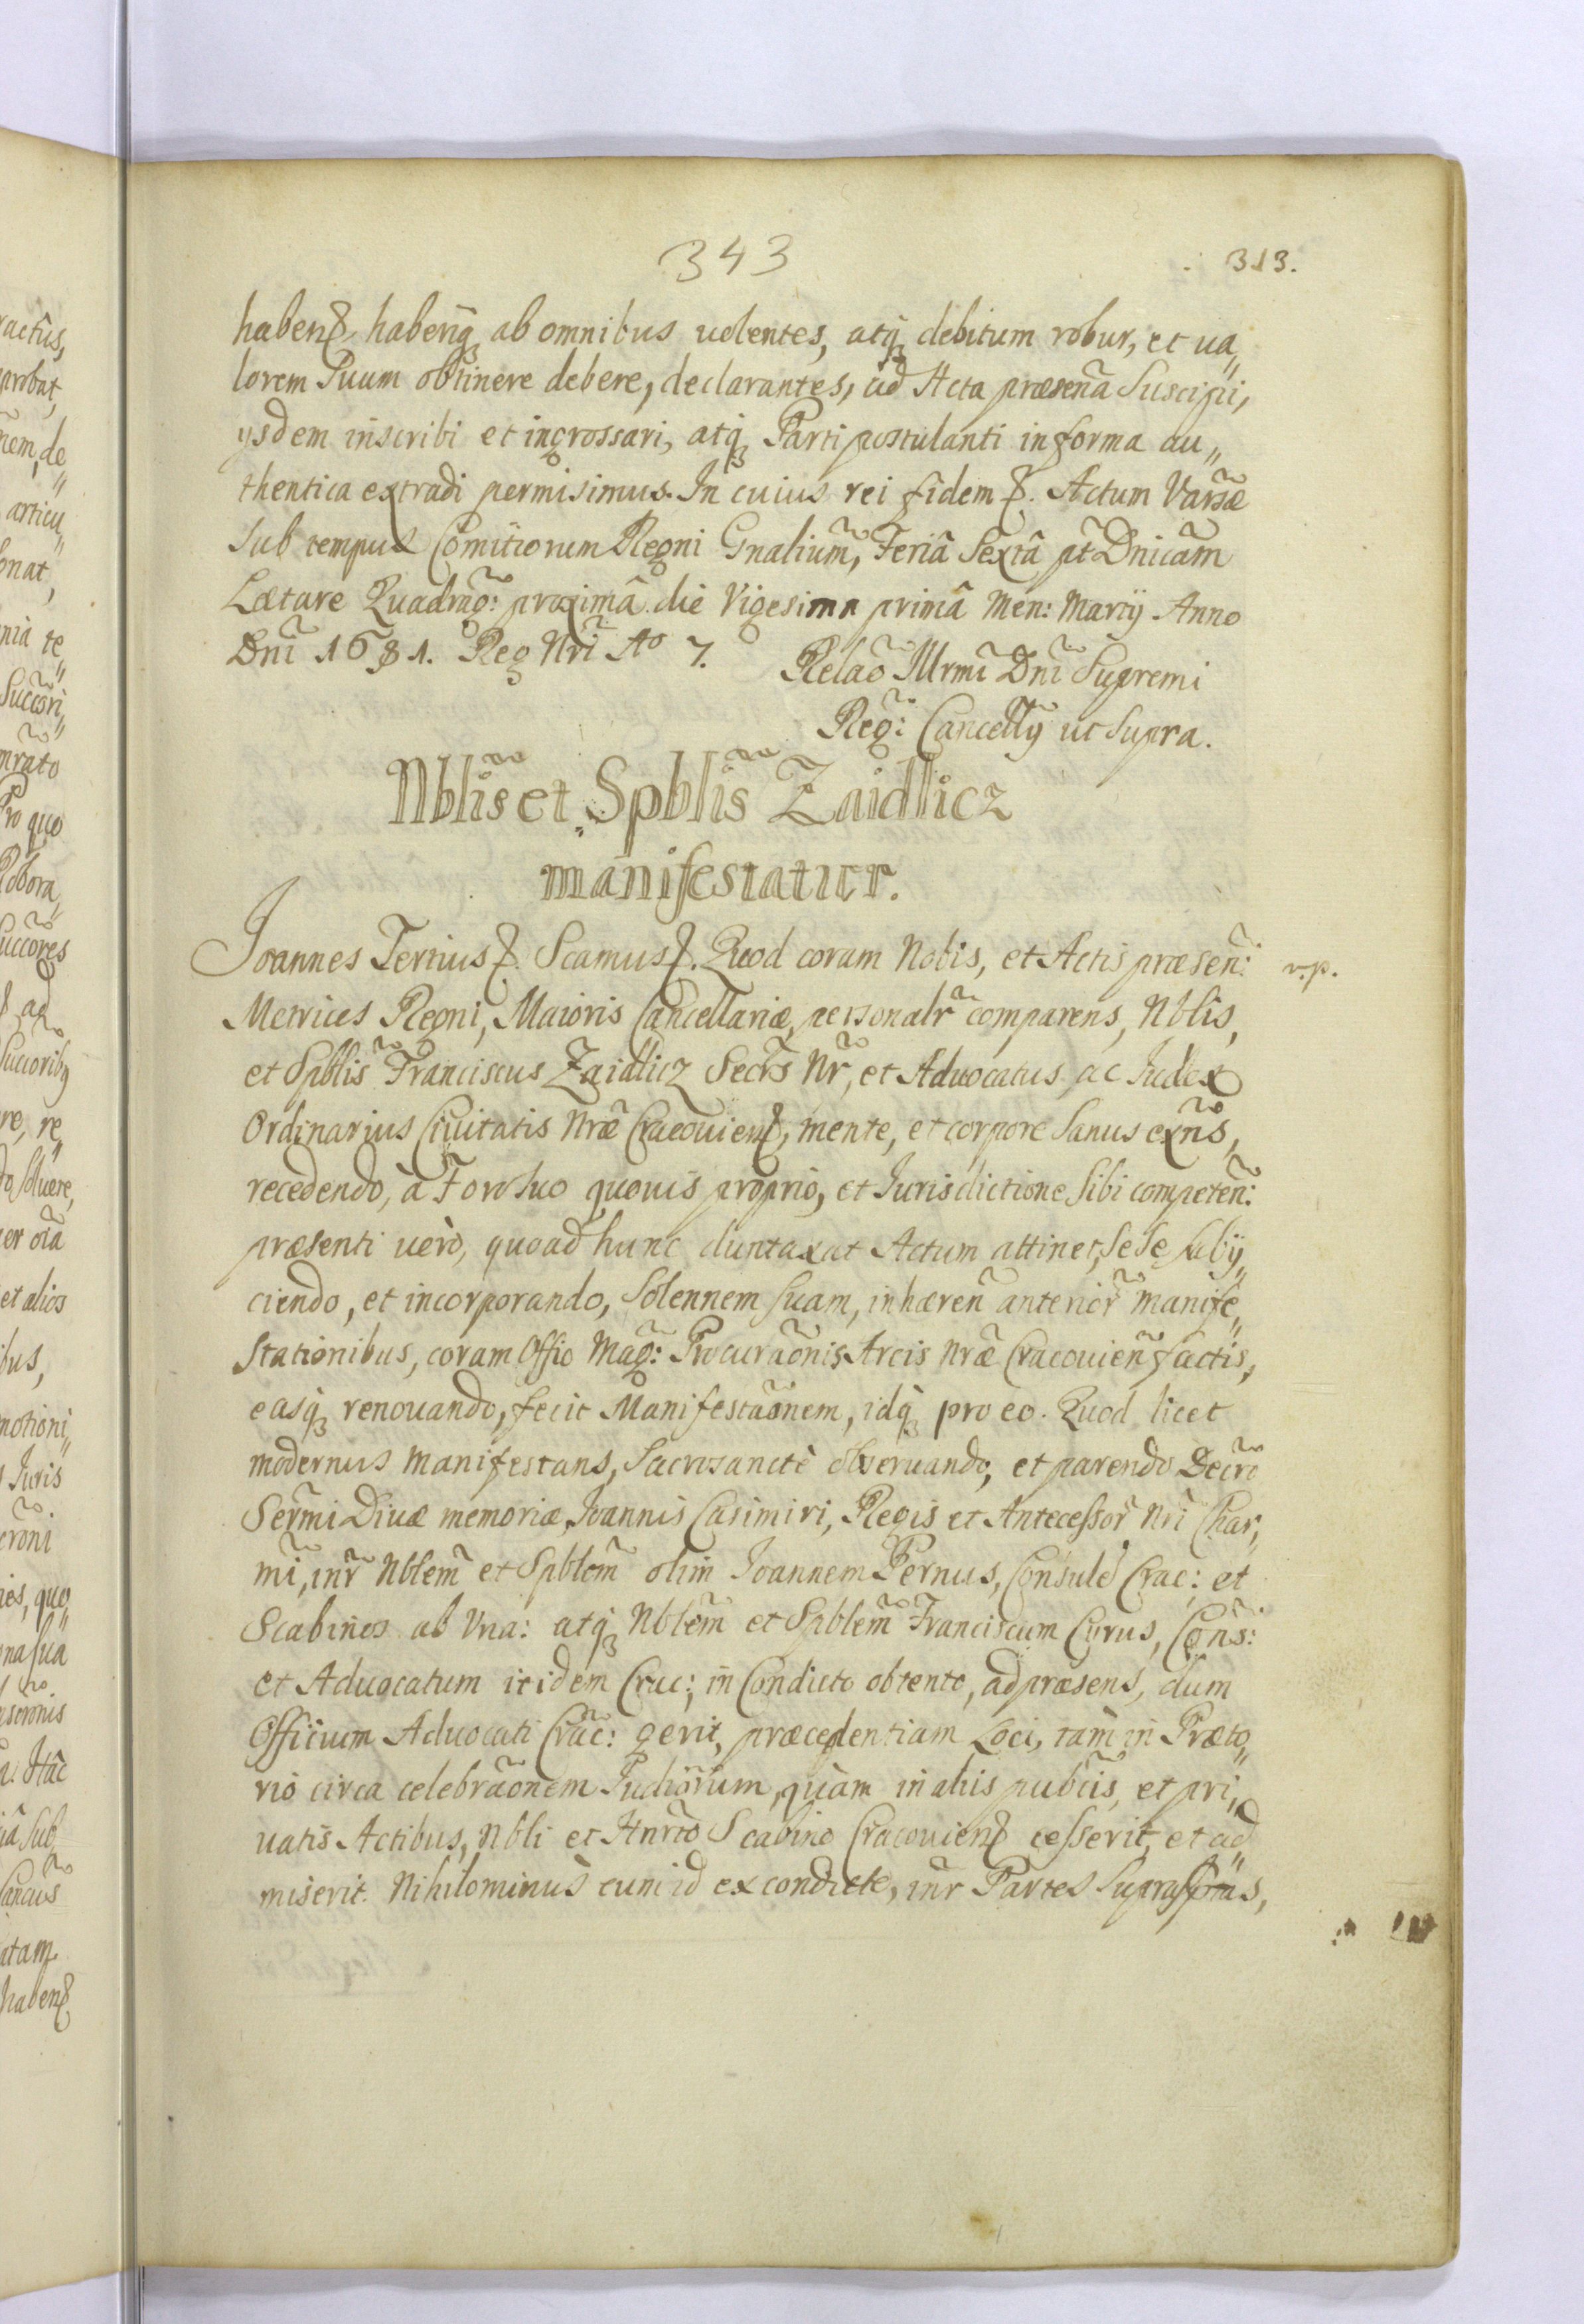 343
313.
habenꝭ, habenq̃ ab omnibus uolentes, atq̃ debitum robur, et ua„
lorem Suum obtinere debere, declarantes, ad Acta præsenã Suscipi,
ysdem inscribi et ingrossari, atq̃ Parti postulanti in forma au„
thentica extradi permisimus. In cuius rei fidem ꝭ. Actum Varsæ̃
Sub tempus Comitiorum Regni Gnaliũm, Feriâ Sextâ pt̃ Dnicam̃
Lætare Quadrag̃: proximâ die Vigesima primâ Men: Martij Anno
Dnĩ 1681. Reg Nrĩ Aº 7.
Relaõ Illrmĩ Dnĩ Supremi
Reg̃: Cancellỹ ut Supra.
Nblĩs et Spblĩs Zaidlicz
manifestatur.
Joannes Tertius ꝭ. Scamus ꝭ. Quod coram Nobis, et Actis præseñ:
v.p.
Metrices Regni, Maioris Cancellariæ, personalr̃ comparens, Nblis,
et Spblis̃ Franciscus Zaidlicz Secrs̃ Nr̃, et Aduocatus ac Iudex
Ordinarius Ciuitatis Nræ̃ Cracouienꝭ, mente, et corpore Sanus exñs,
recedendo, à Foro suo quouis proprio, et Iurisdictione Sibi competeñ:
præsenti uerò, quoad hunc duntaxat Actum attinet, Sese Subij„
ciendo, et incorporando, Solennem Suam, inhæreñ anterior̃ Manife„
Stationibus, coram Offio Mag̃: Procuraõnis Arcis Nræ̃ Cracouieñ factis,
easq̃ renouando, fecit Manifestaõnem, idq̃ pro eo. Quod licet
modernus Manifestans, Sacrosanctè obseruando, et parendo Decrõ
Serm̃i Diuæ memoriæ Ioannis Casimiri, Regis et Antecessor̃ Nrĩ Char„
mĩ, inr̃ Nblem̃ et Spblem̃ olim Ioannem Pernus, Consulẽ Crac: et
Scabinos ab Vna: atq̃ Nblem̃ et Spblem̃ Franciscum Cyrus, Coñs:
et Aduocatum itidem Crac:, in Condicto obtento, ad præsens, dum
Officium Aduocati Crac̃: gerit, præcedentiam Loci, tàm in Præto„
rio circa celebraõnem Iudiorũm, quàm in alijs pubcĩs, et pri„
uatis Actibus, Nbli et Hnrtõ Scabino Cracouienꝭ cesserit, et ad
miserit. Nihilominùs cum id ex condicto, inr̃ Partes Suprasptas,